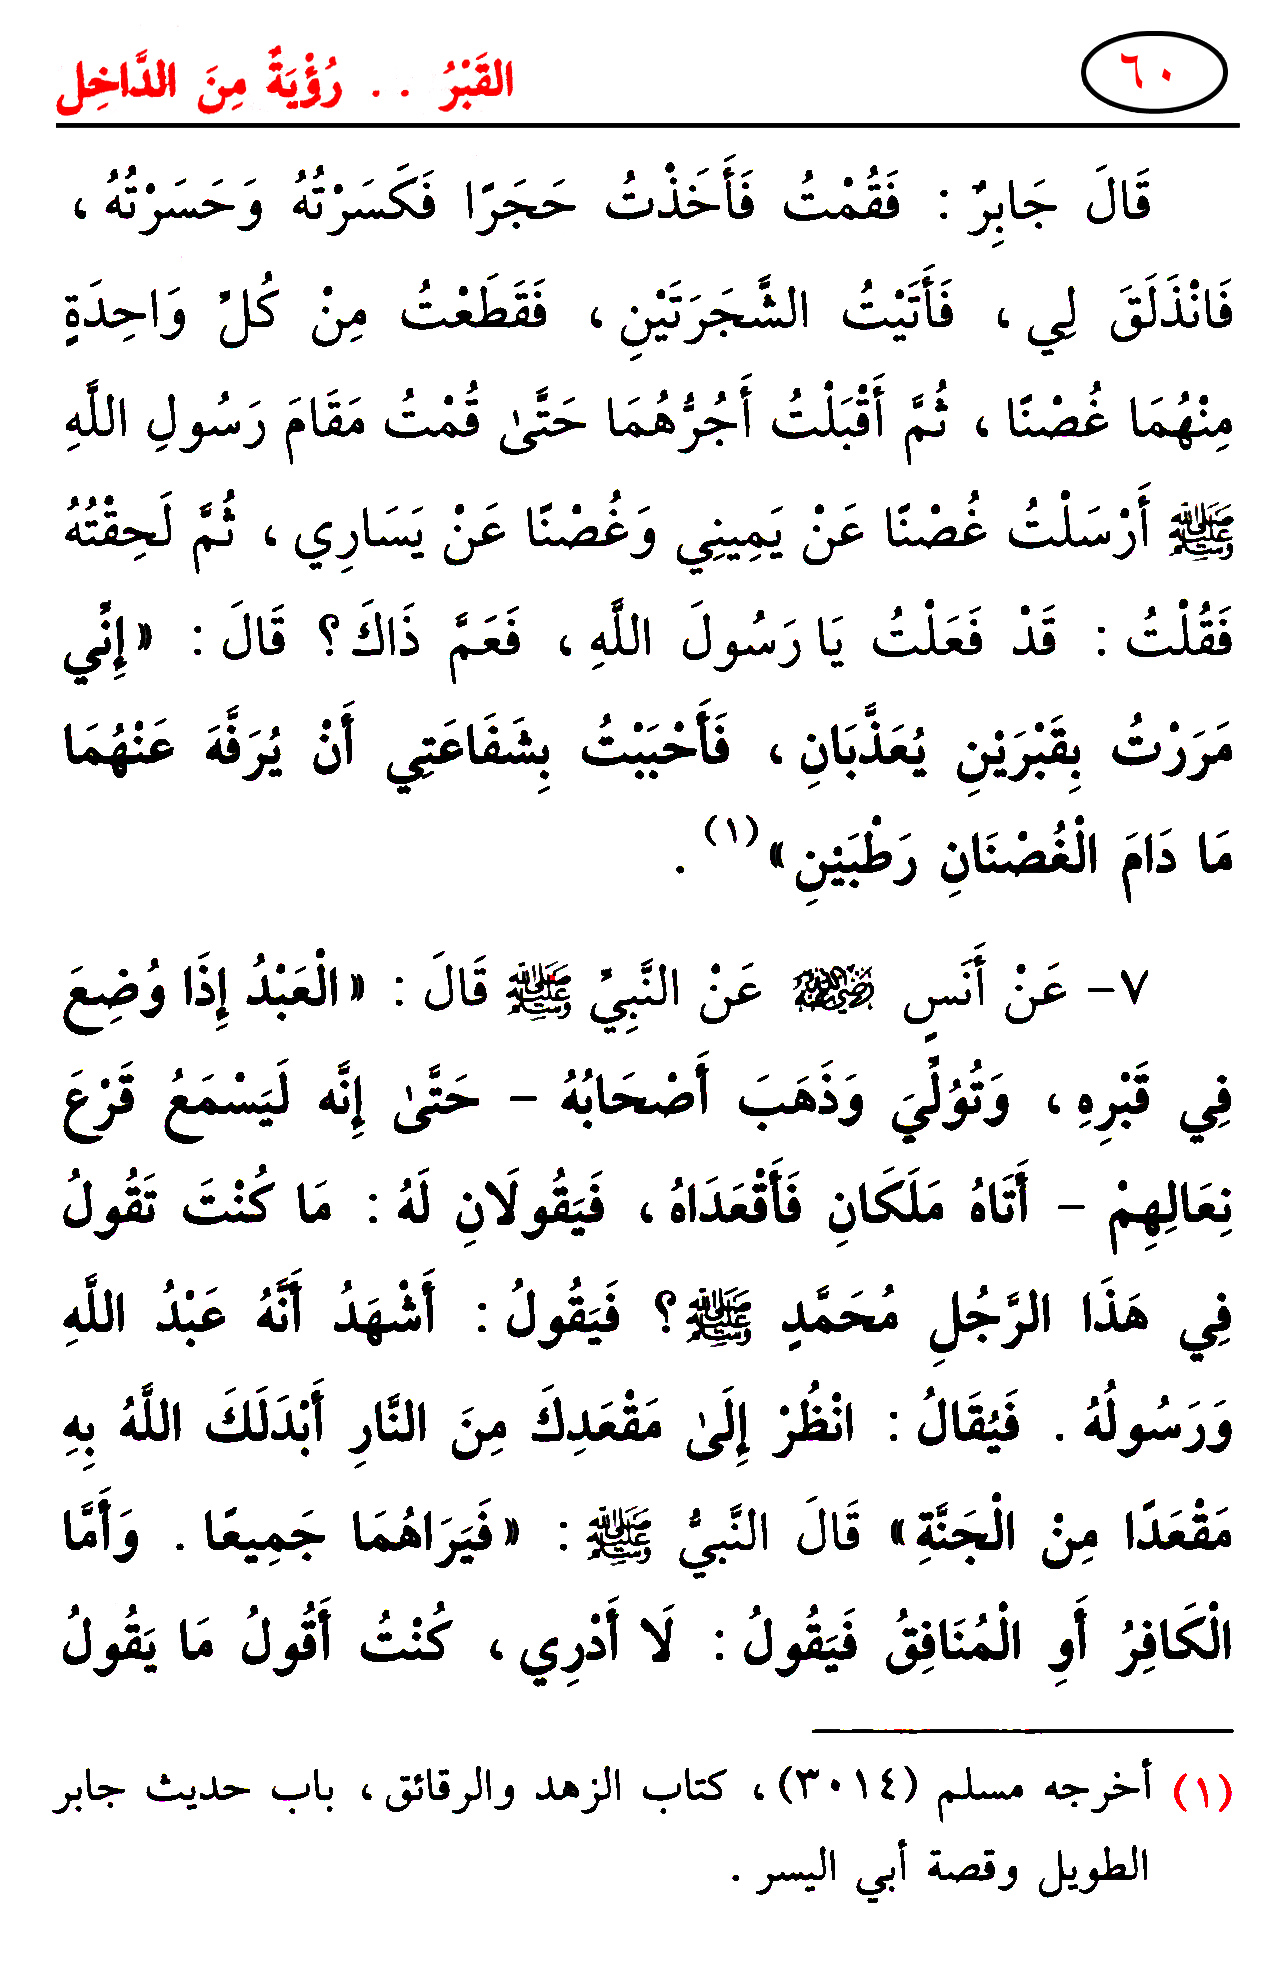 ٦٠
القَبْرُ .. رُؤْيَةٌ مِنَ الدَّاخِل
قَالَ جَابِرٌ : فَقُمْتُ فَأَخَذْتُ حَجَرًا فَكَسَرْتُهُ وَحَسَرْتُهُ ،
فَانْذَلَقَ لِي ، فَأَتَيْتُ الشَّجَرَتَيْنِ ، فَقَطَعْتُ مِنْ كُلِّ وَاحِدَةٍ
مِنْهُمَا غُصْنًا ، ثُمَّ أَقْبَلْتُ أَجُرُّهُمَا حَتَّىٰ قُمْتُ مَقَامَ رَسُولِ اللَّهِ
ﷺ أَرْسَلْتُ غُصْنًا عَنْ يَمِينِي وَغُصْنًا عَنْ يَسَارِي ، ثُمَّ لَحِقْتُهُ
فَقُلْتُ : قَدْ فَعَلْتُ يَا رَسُولَ اللَّهِ ، فَعَمَّ ذَاكَ ؟ قَالَ : «إِنِّي
مَرَرْتُ بِقَبْرَيْنِ يُعَذَّبَانِ ، فَأَحْبَبْتُ بِشَفَاعَتِي أَنْ يُرَفَّهَ عَنْهُمَا
مَا دَامَ الْغُصْنَانِ رَطْبَيْنِ»(١) .
٧- عَنْ أَنَسٍ رَضِيَ اللَّهُ عَنْهُ عَنْ النَّبِيِّ ﷺ قَالَ : «الْعَبْدُ إِذَا وُضِعَ
فِي قَبْرِهِ ، وَتُوُلِّيَ وَذَهَبَ أَصْحَابُهُ - حَتَّىٰ إِنَّه لَيَسْمَعُ قَرْعَ
نِعَالِهِمْ - أَتَاهُ مَلَكَانِ فَأَقْعَدَاهُ ، فَيَقُولَانِ لَهُ : مَا كُنْتَ تَقُولُ
فِي هَذَا الرَّجُلِ مُحَمَّدٍ ﷺ ؟ فَيَقُولُ : أَشْهَدُ أَنَّهُ عَبْدُ اللَّهِ
وَرَسُولُهُ . فَيُقَالُ : انْظُرْ إِلَىٰ مَقْعَدِكَ مِنَ النَّارِ أَبْدَلَكَ اللَّهُ بِهِ
مَقْعَدًا مِنْ الْجَنَّةِ» قَالَ النَّبِيُّ ﷺ : «فَيَرَاهُمَا جَمِيعًا . وَأَمَّا
الْكَافِرُ أَوِ الْمُنَافِقُ فَيَقُولُ : لَا أَدْرِي ، كُنْتُ أَقُولُ مَا يَقُولُ
(١) أخرجه مسلم (٣٠١٤) ، كتاب الزهد والرقائق ، باب حديث جابر
الطويل وقصة أبي اليسر .